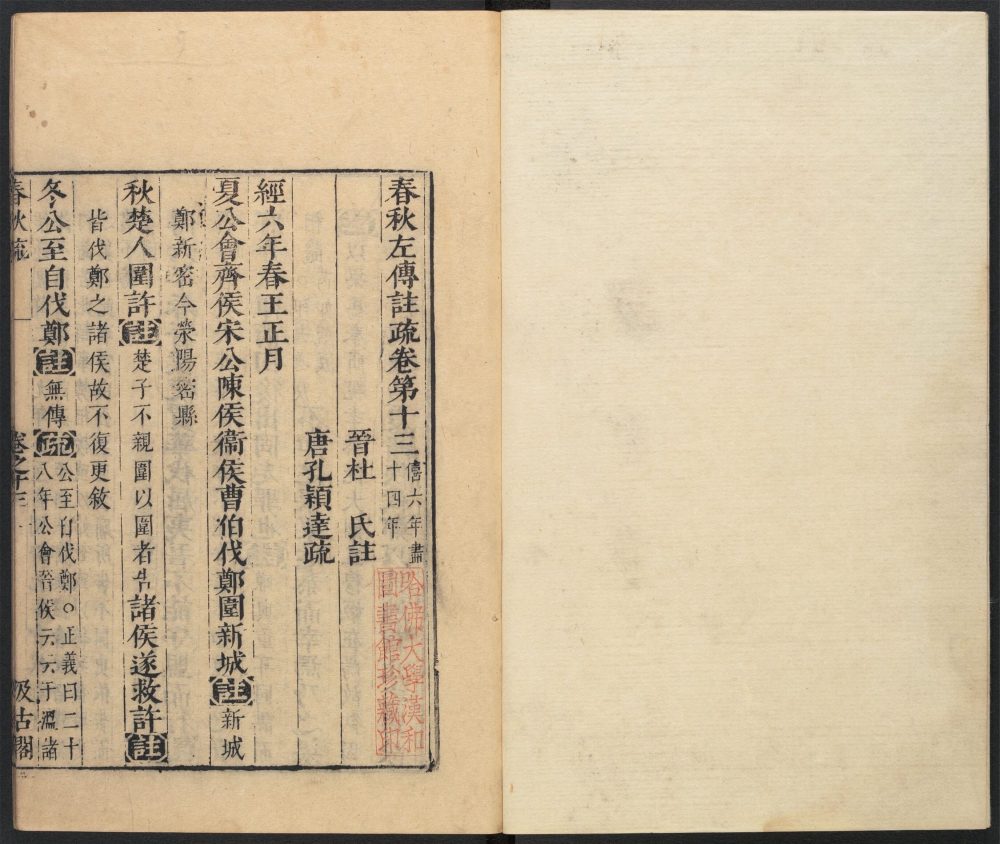 春秋左傳註疏卷第十三 僖六年盡十四年
晉杜　氏註
唐孔穎達疏
哈佛大學漢和圖書館珍藏印
經六年春王正月
夏公會齊侯宋公陳侯衞侯曹伯伐鄭圍新城註新城
鄭新密今滎陽密縣
秋楚人圍許註楚子不親圍以圍者告諸侯遂救許註
皆伐鄭之諸侯故不復更敘
冬公至自伐鄭註無傳疏公至自伐鄭○正義曰二十
八年公會晉侯云云于溫諸
春秋疏 卷之十三 一 汲古閣